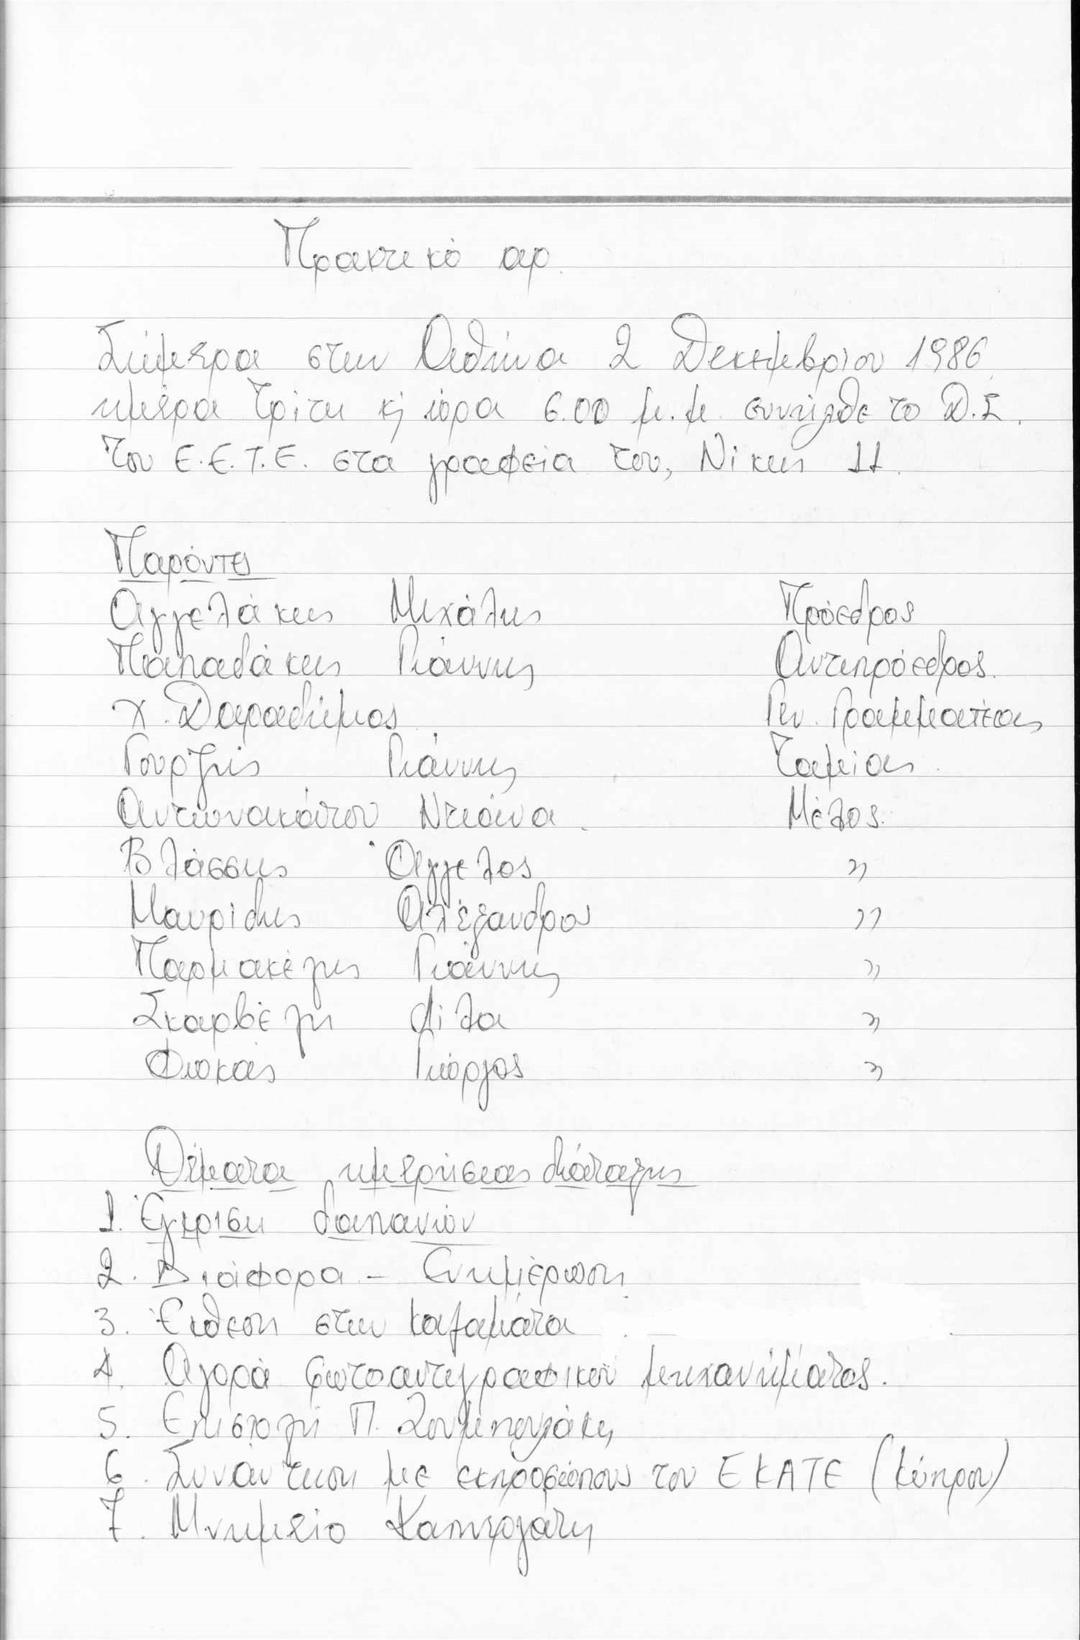 Πρακτικό αρ.
Σήμερα στην Αθήνα 2 Δεκεμβρίου 1986
ημέρα Τρίτη κ ώρα 6.00 μ.μ. συνήλθε το Δ.Σ.
του Ε.Ε.Τ.Ε. στα γραφεία του, Νίκης 11.
Παρόντες
Αγγελάκης Μιχάλης Πρόεδρος
Παπαδάκης Γιάννης Αντιπρόεδρος.
Χ. Δαραδήμος Γεν. Γραμμματέας
Γουρζής Γιάννης Ταμείας.
Αντωνακάτου Ντιάνα. Μέλος.
Βλάσσης Άγγελος "
Μαυρίδης Αλέξανδρος "
Παρμακέλης Γιάννης "
Σκαρβέλη Λίλα "
Φωκάς Γιώργος "
Θέματα ημερήσιας διάταξης
1. Έγκριση δαπανών
2. Διάφορα - Ενημέρωση
3. Έκθεση στην Καλαμάτα
4. Αγορά φωτοαντιγραφικού μηχανήματος.
5. Επιστολή Π. Ζουμπουλάκη
6. Συνάντηση με εκπροσώπους του ΕΚΑΤΕ (Κύπρου)
7. Μνημείο